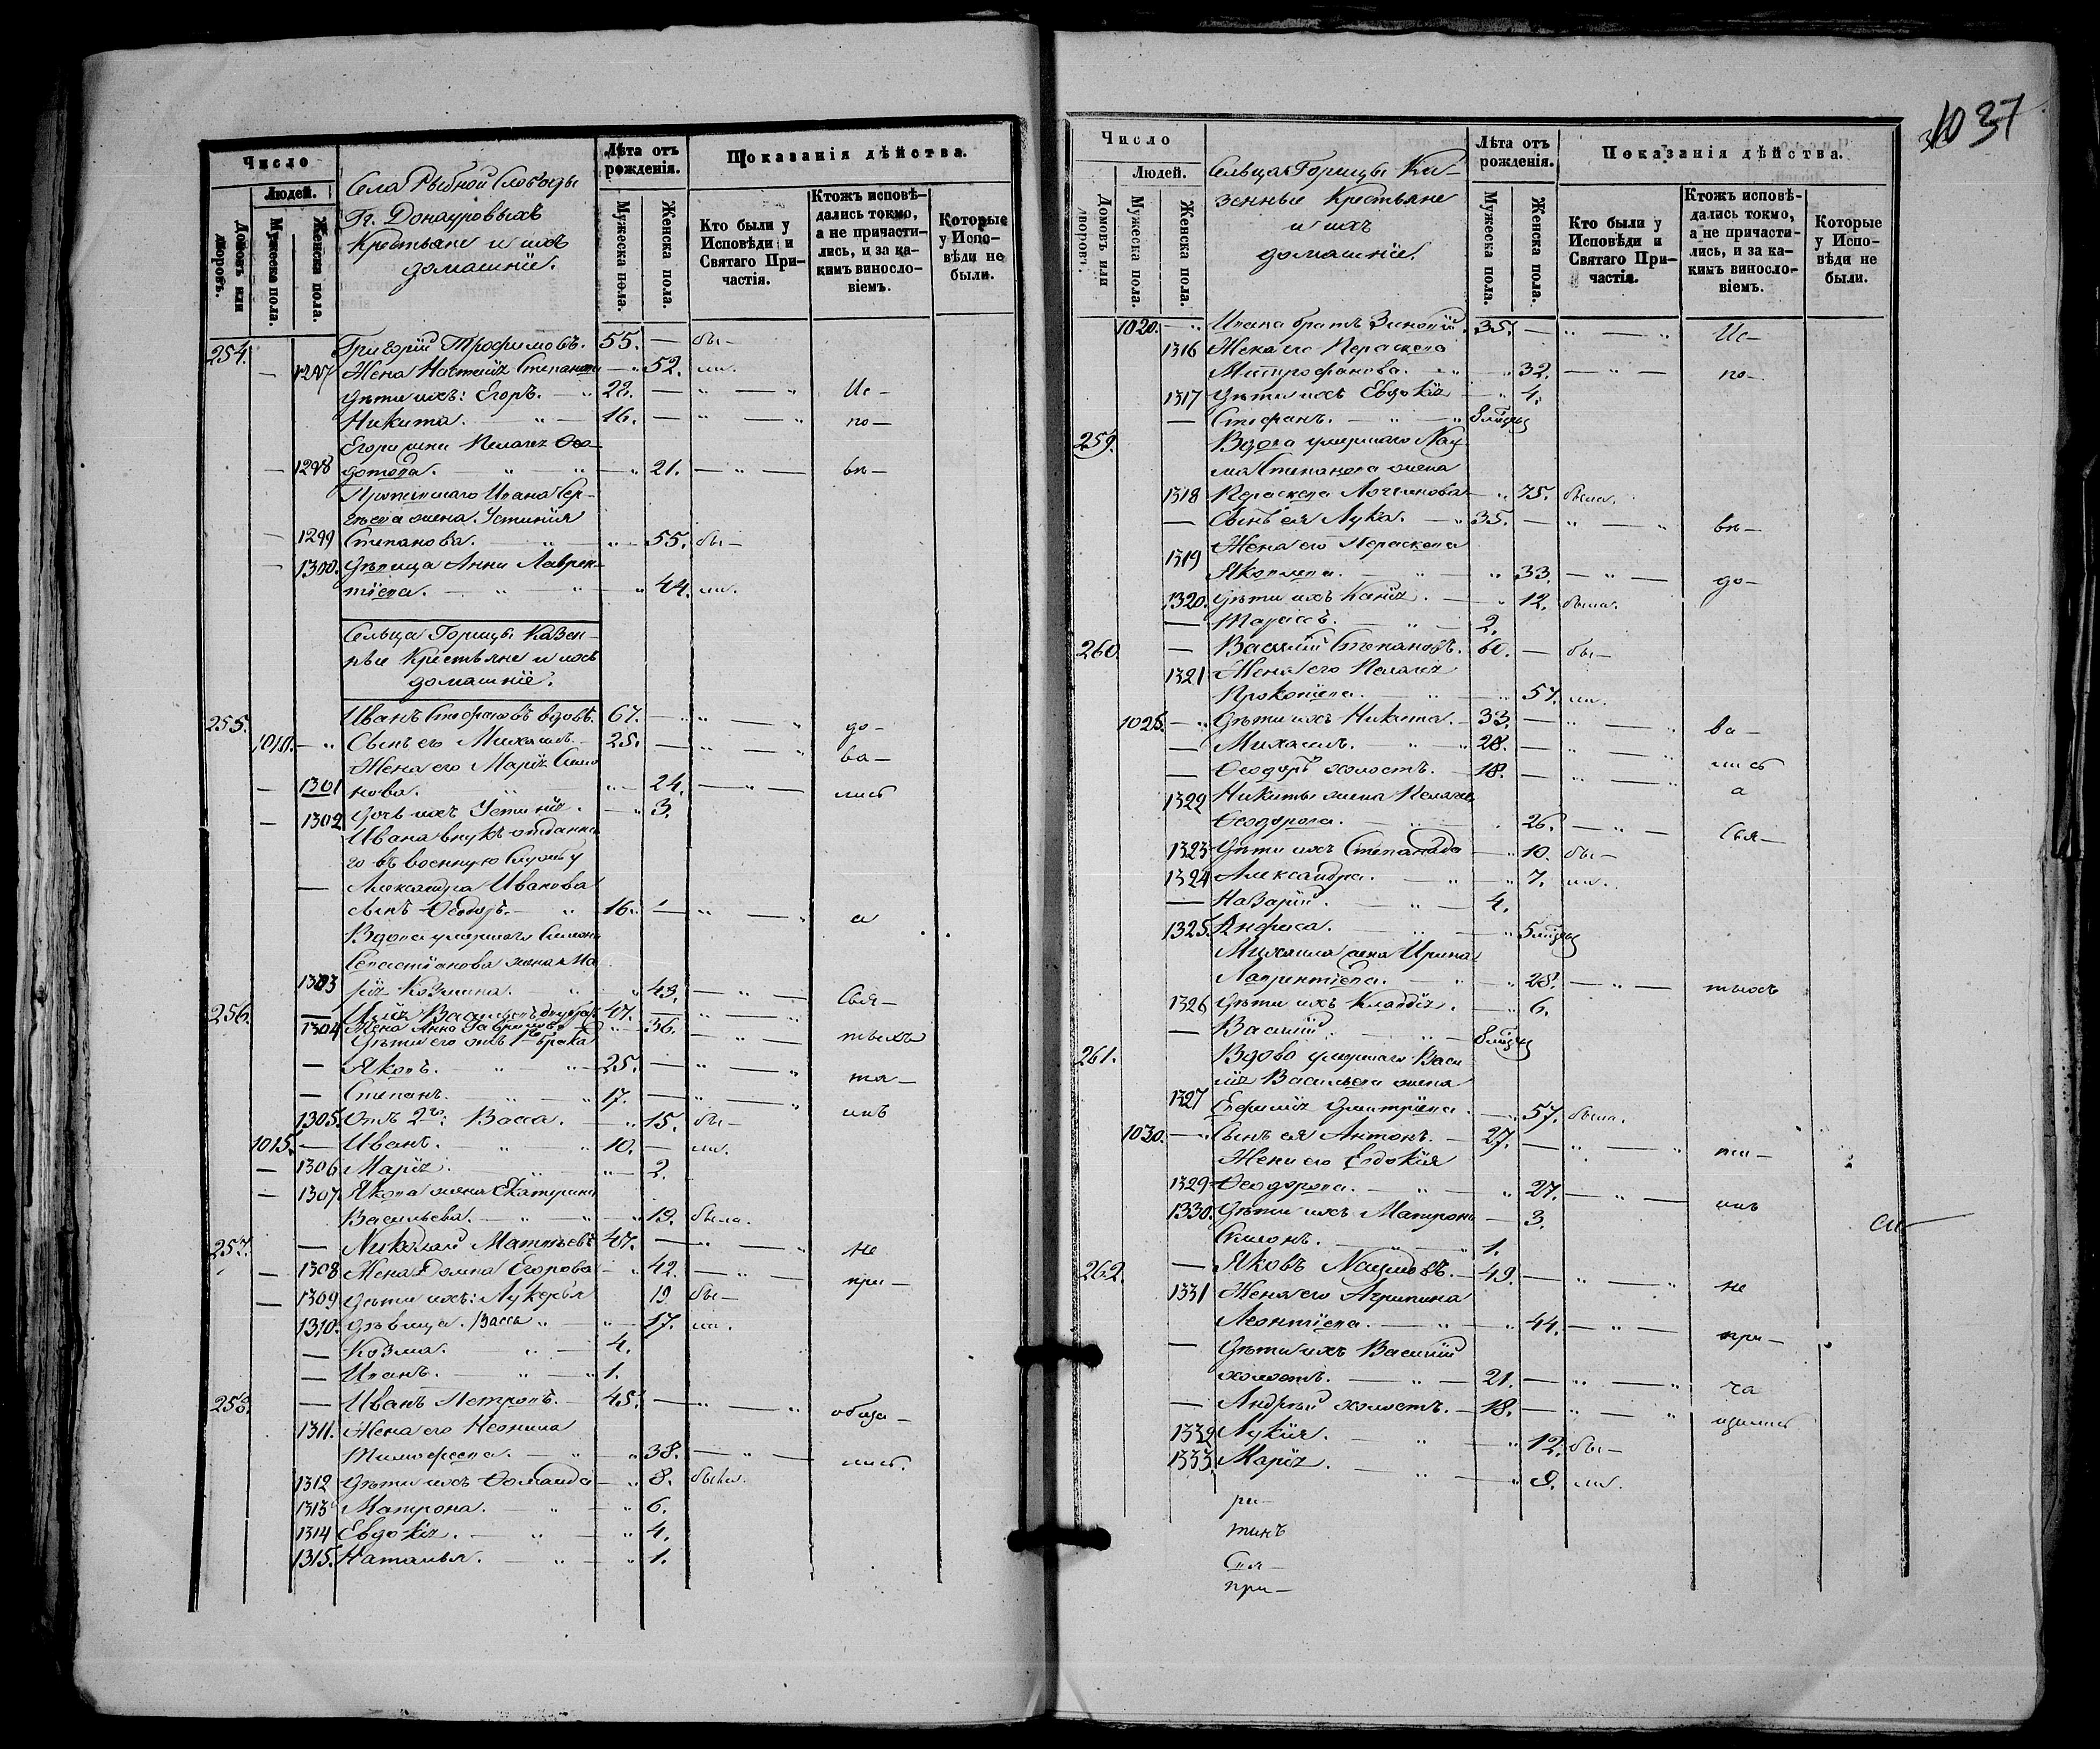 Число
Людей.
Домовъ или дворовъ.
Мужеска пола.
Женска пола.
Села Рыбной Слободы
Гг. Донауровыхъ
Крестьяне и ихъ
домашніе.
Лѣта отъ рожденія.
Мужеска пола.
Женска пола.
Показанія дѣйства.
Кто были у Исповѣди и Святаго Причастія.
Ктожъ исповѣдались токмо, а не причастились, и за какимъ винословіемъ.
Которые у Исповѣди не были.
254. Григорій Трофимовъ. 55. — бы—
1297 Жена Наталія Степанова 52. ли.
Дѣти ихъ: Егоръ. 22. Ис—
Никита. 16. по—
Егора жена Пелагея Фео—
1298 дотова. 21. вѣ—
Ивана Сер—
гѣева жена Устинія
1299 Степанова. 55. бы—
1300. Дѣвица Анна Лаврен—
тіева. 44. ли.
Сельца Горицы Казен—
ные Крестьяне и ихъ
домашніе.
255. Иванъ Стефановъ вдовъ. 67. до—
1010. Сынъ его Михаилъ. 25. ва—
Жена его Марія Симо
1301 нова. 24. лись
1302 Дочь ихъ Устинія. 3.
Ивана внукъ отданна
го въ военную службу
Александра Иванова
сынъ Феодоръ. 16. а
Вдова умершаго Симона
Севастіанова жена Ма
1303 рія Козмина. 43. Свя—
256. Илія Васильевъ 47.
1304 Жена Анна Гаврилова 36. тыхъ
Дѣти его отъ 1го брака
Яковъ. 25. та—
Степанъ. 17. инъ
1305. Отъ 2го: Васса. 15. бы—
1015. Иванъ. 10. ли.
1306 Марія. 2.
1307 Якова жена Екатерина
Васильева. 19. была.
257. Николай Матвѣевъ 47. не
1308 Жена Домна Егорова 42. при—
1309 Дѣти ихъ: Лукерья 19 бы—
1310. Дѣвица. Васса 17. ли.
Козма. 4.
Иванъ. 1.
258. Иванъ Петровъ. 45. обща—
1311. Жена его Неонила
Тимофеева. 38. лись.
1312 Дѣти ихъ Домнида 8. были.
1313 Матрона. 6.
1314 Евдокія. 4.
1315. Наталья. 1.
1037
Число
Людей.
Домовъ или дворовъ.
Мужеска пола.
Женска пола.
Сельца Горицы Ка—
зенные Крестьяне
и ихъ
домашніе.
Лѣта отъ рожденія.
Мужеска пола.
Женска пола.
Показанія дѣйства.
Кто были у Исповѣди и Святаго Причастія.
Ктожъ исповѣдались токмо, а не причастились, и за какимъ винословіемъ.
Которые у Исповѣди не были.
1020. Ивана братъ Зиновій. 35. Ис—
1316 Жена его Параскева
Митрофанова. 32. по—
1317 Дѣти ихъ Евдокія 4.
Стефанъ.
259. Вдова умершаго Нау
ма Степанова жена
1318 Параскева Логгинова 75. была.
Сынъ ея Лука. 35. вѣ—
1319 Жена его Параскева
Яковлева. 33. до—
1320. Дѣти ихъ Ксенія. 12. была.
Тарасъ. 2.
260. Василій Степановъ. 60. бы—
1321 Жена его Пелагея
Прокопіева. 57. ли.
1025. Дѣти ихъ Никита. 33. ва—
Михаилъ. 28. лись
Феодоръ холостъ. 18. а
1322 Никиты жена Пелагея
Феодорова. 26. Свя—
1323 Дѣти ихъ Степанида 10. бы—
1324 Александра. 7. ли.
Назарій. 4.
1325. Анфиса.
Михаила жена Ирина
Лаврентіева. 28. тыхъ
1326 Дѣти ихъ Клавдія. 6.
Василій.
261. Вдова умершаго Васи
лія Васильева жена
1327 Евфимія Дмитріева 57. была.
1030. Сынъ ея Антонъ. 27. та—
Жена его Евдокія
1329 Феодорова. 27. инъ
1330. Дѣти ихъ Матрона 3.
Симонъ. 1.
262. Яковъ Наумовъ. 49. не
1331 Жена его Агрипина
Леонтіева. 44. при—
Дѣти ихъ Василій
холостъ. 21. ча
Андрей холостъ. 18. щались
1332 Лукія. 12. бы—
1333 Марія. 9. ли.
ри—
тинъ
Свя—
при—